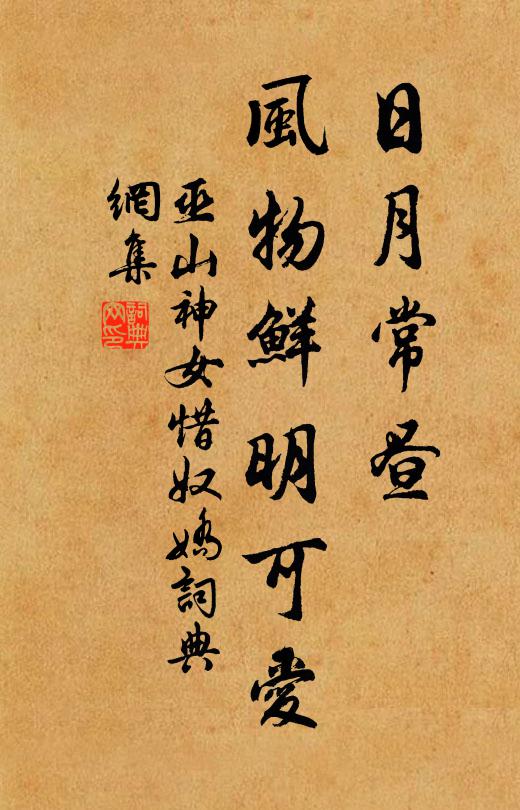 日月常昼
風物鮮明可愛
巫山神女惜奴嬌詞典
網集
詞典